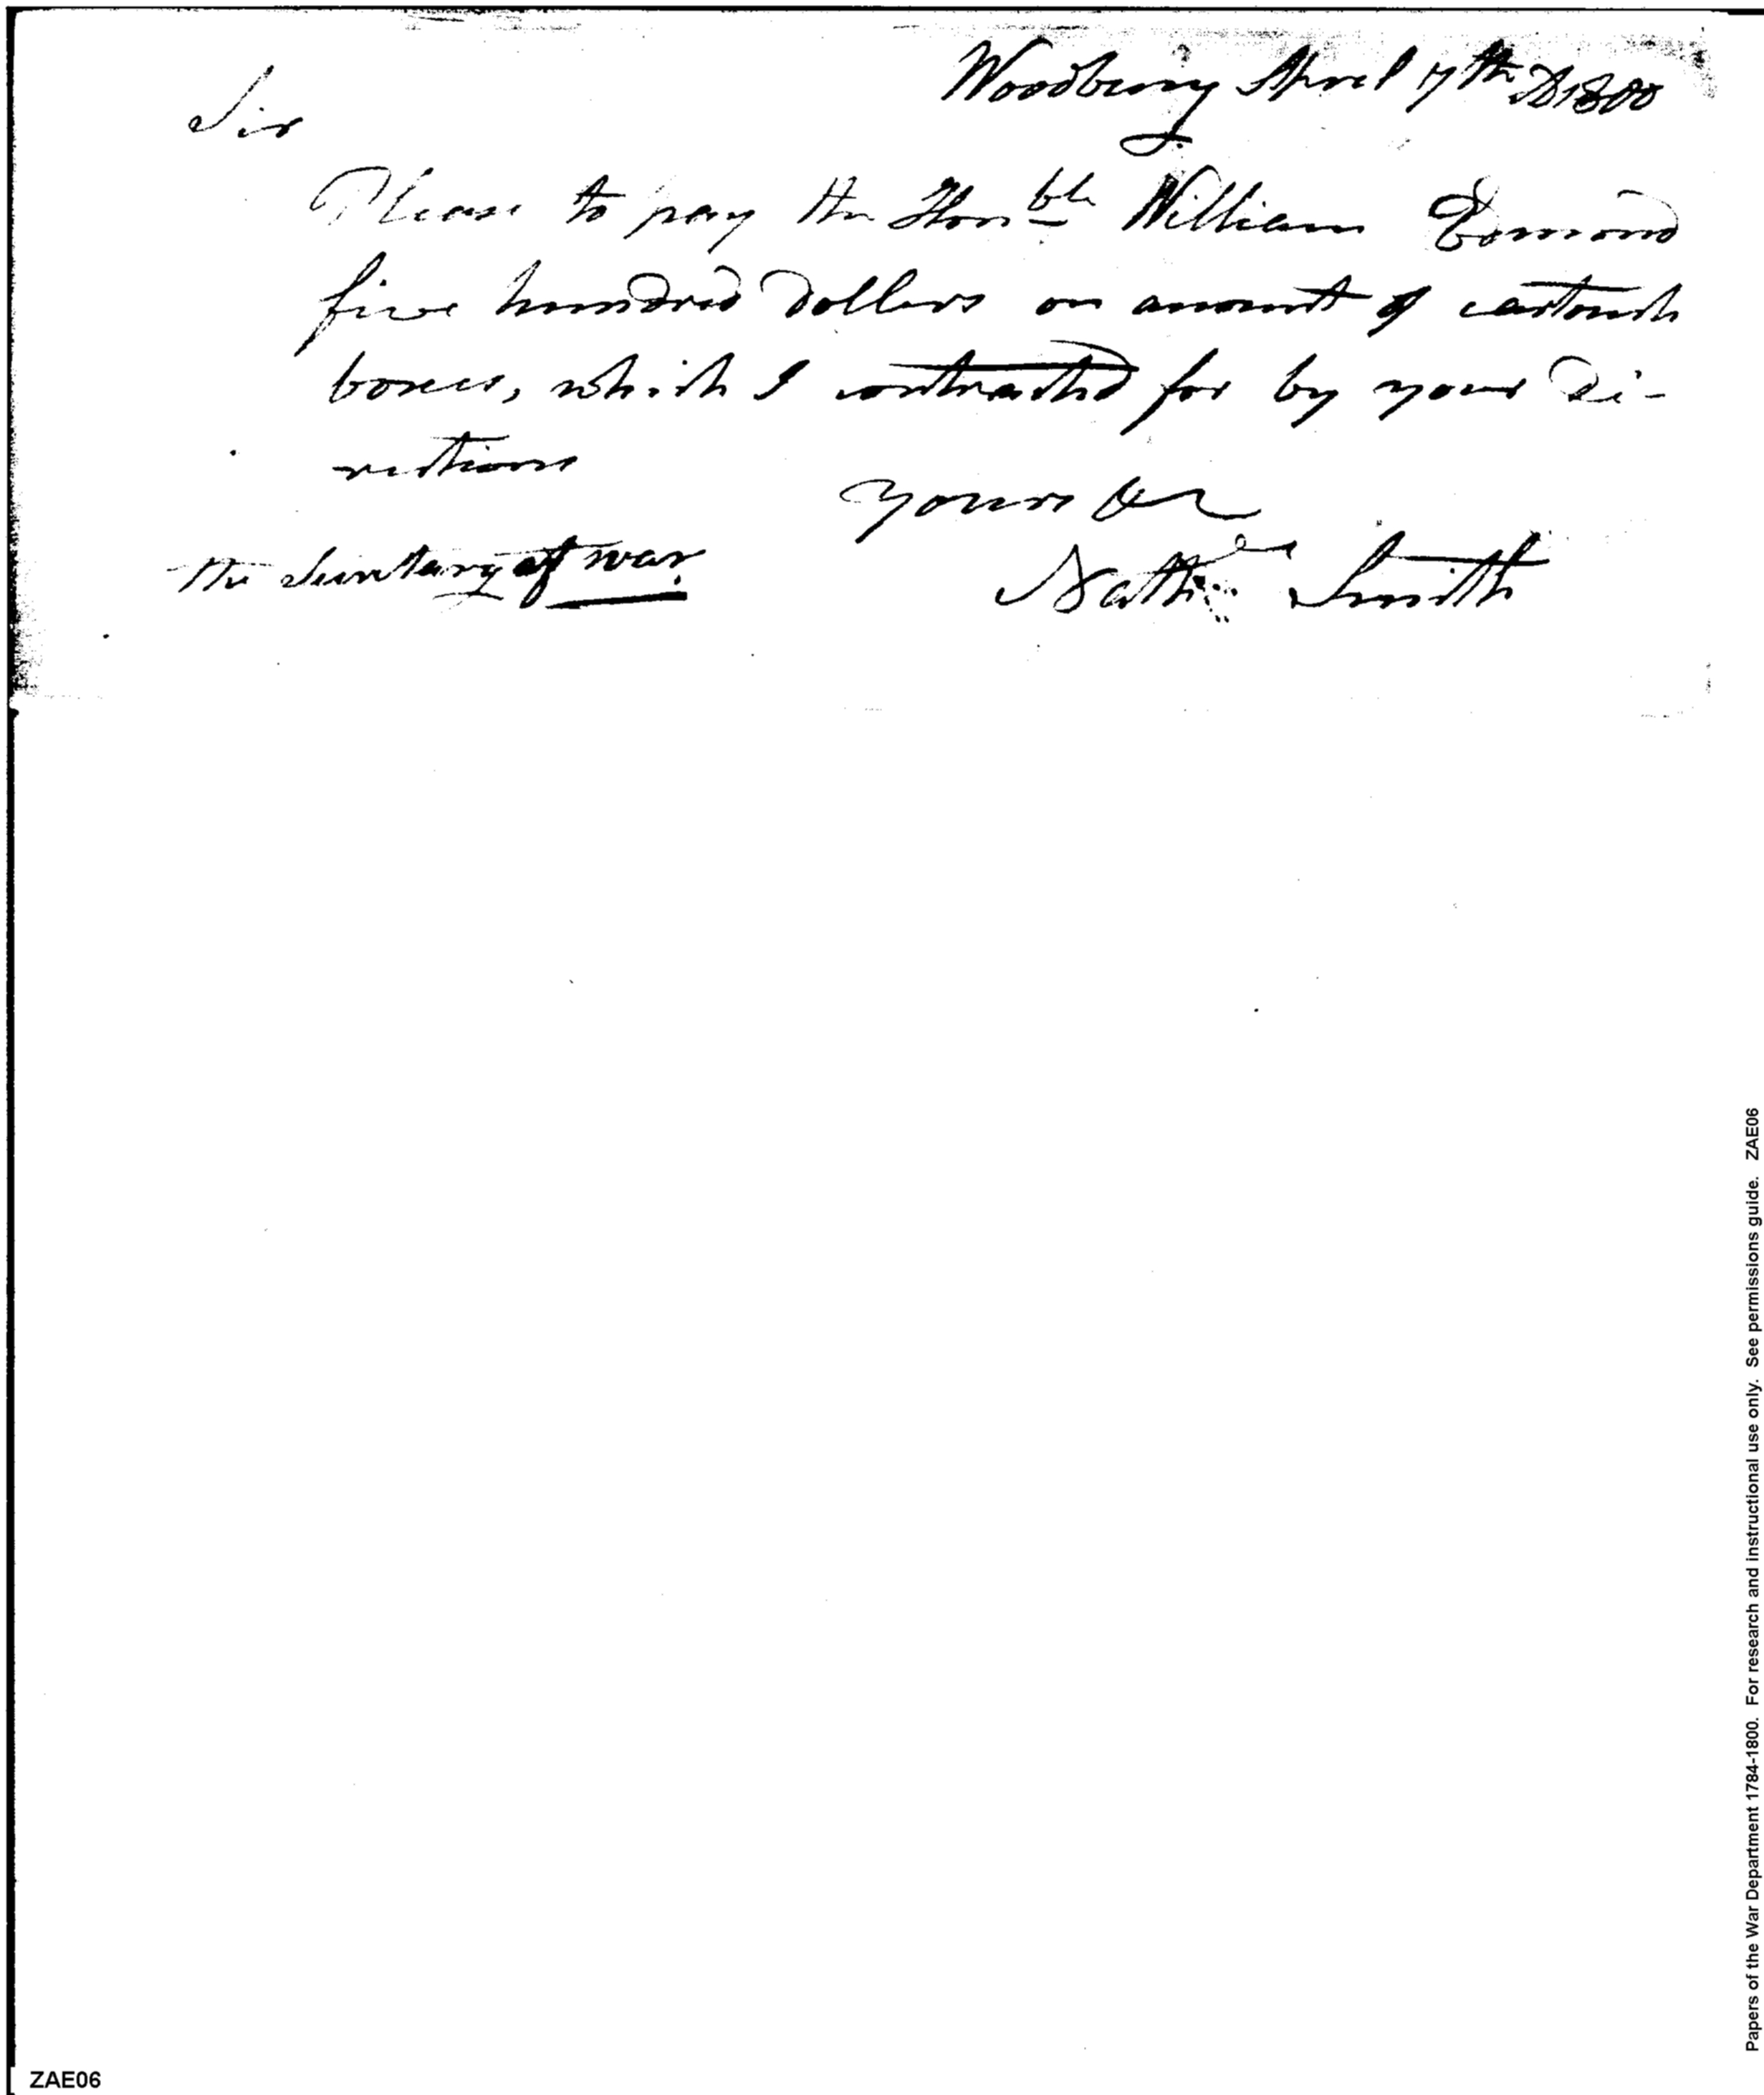 Woodbury April 7th AD 1800
Sir
Please to pay the Honble William Edmond
five hundred Dollars on amount of cartouch
boxes, which I contracted for by your Di-
rections
Yours &c
the Secretary of war
Nathl Smith
Papers of the War Department 1784-1800. For research and instructional use only. See permissions guide. ZAE06
ZAE06